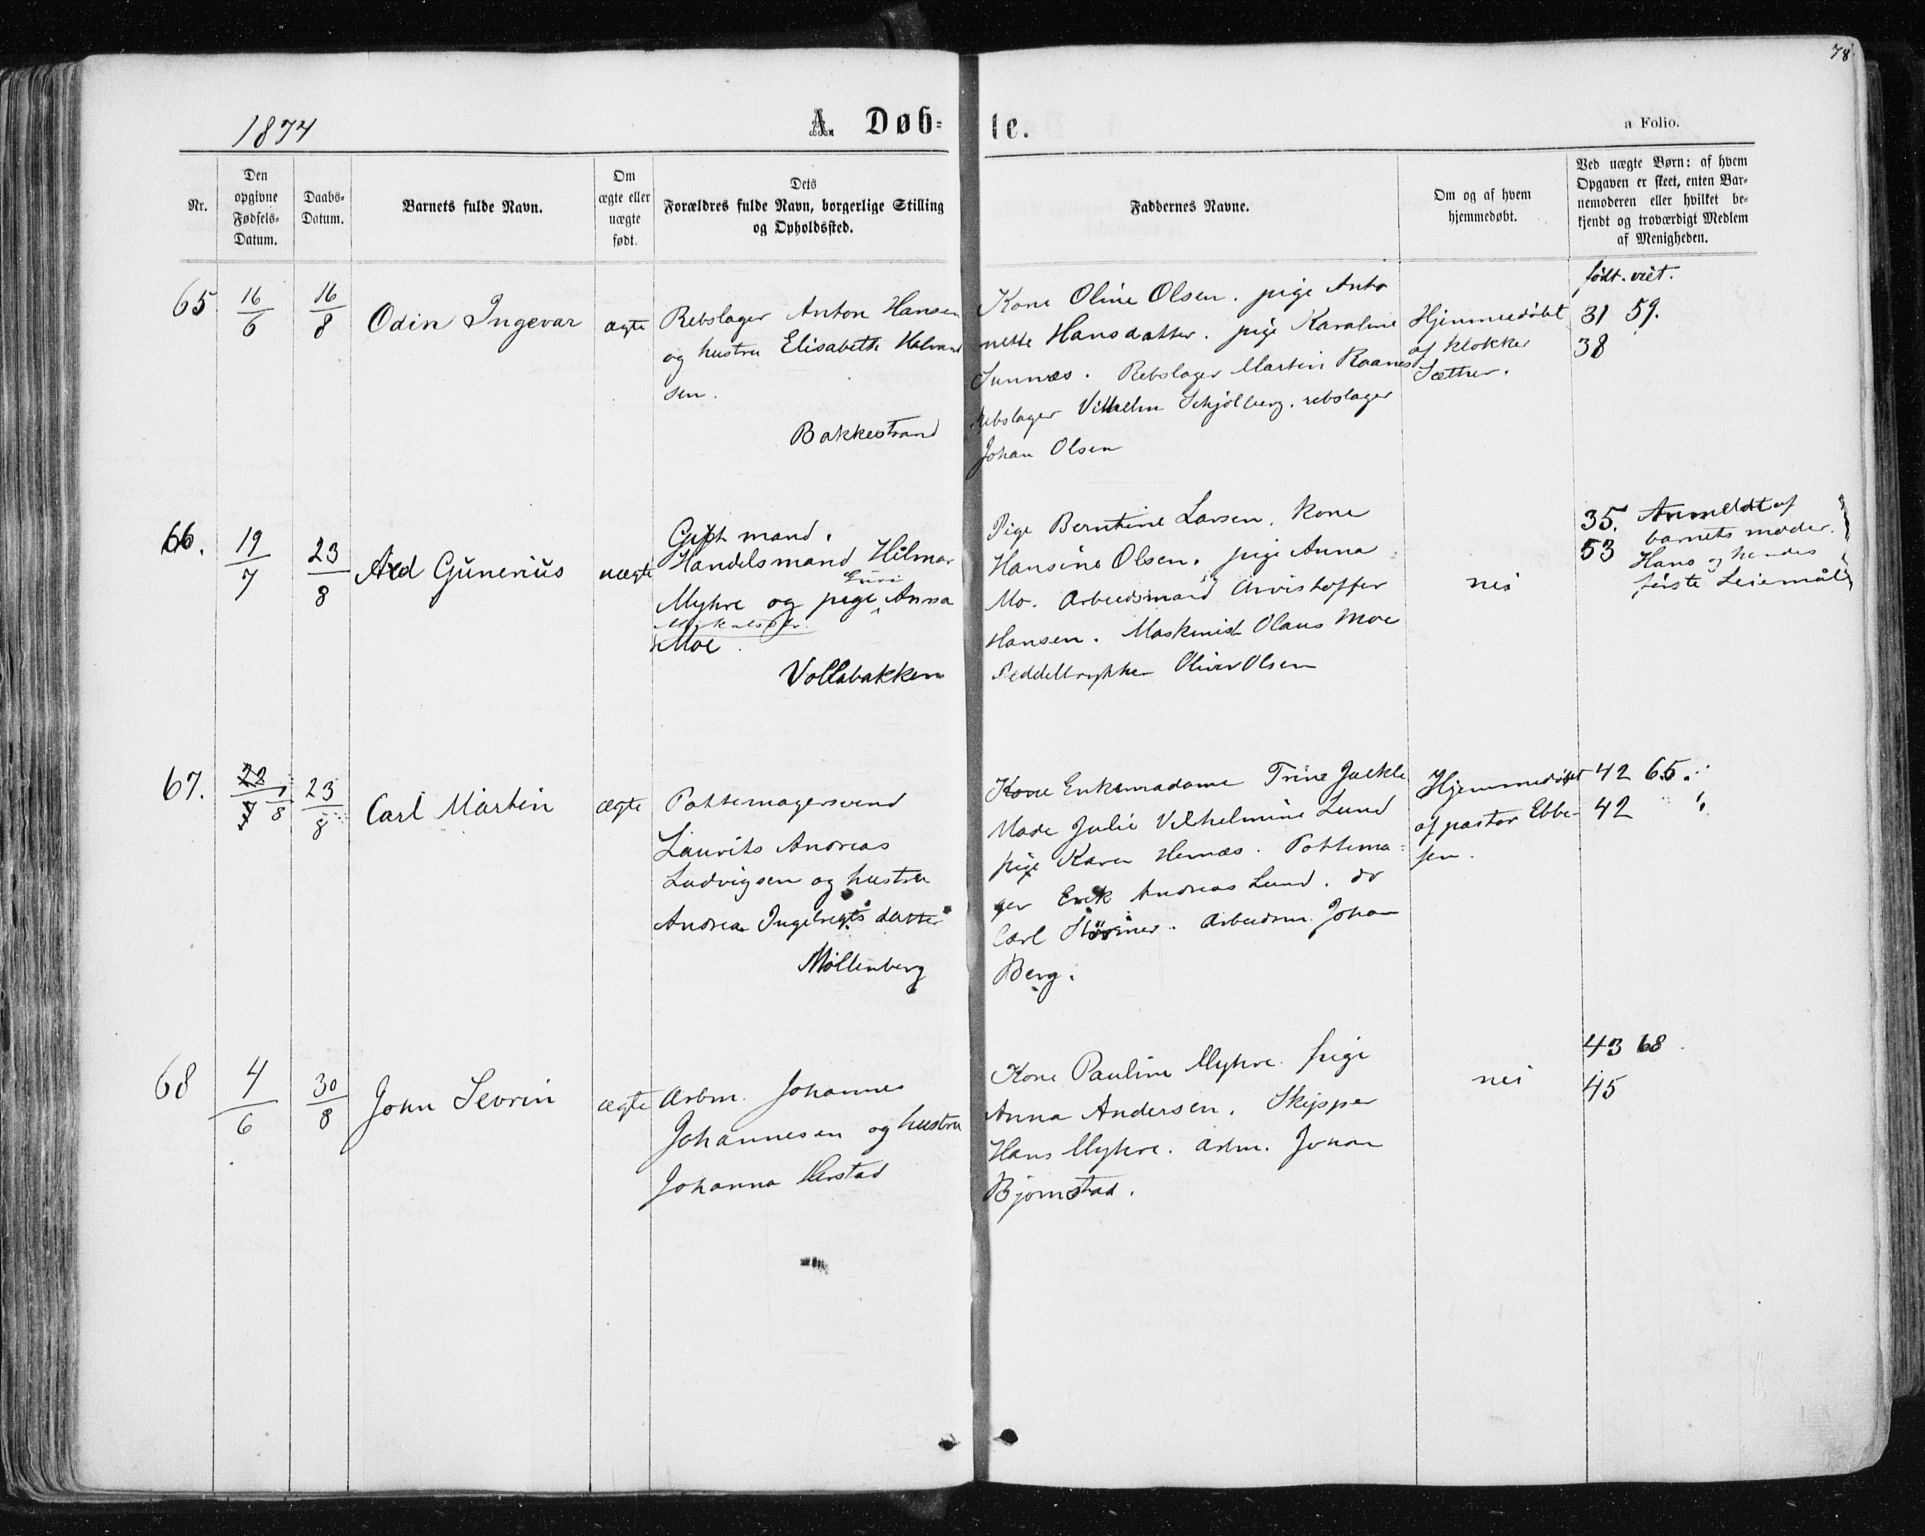 78
1874
A. Døb-
te.
a Folio.
Nr.
Den
opgivne
Fødsels-
Datum.
Daabs-
Datum.
Barnets fulde Navn.
Om
ægte eller
uægte
født.
Dets
Forældres fulde Navn, borgerlige Stilling
og Opholdssted.
Faddernes Navne.
Om og af hvem
hjemmedøbt.
Ved uægte Børn: af hvem
Opgaven er skeet, enten Bar-
nemoderen eller hvilket be-
kjendt og troværdigt Medlem
af Menigheden.
født. viet.
65
16/6
16/8
Odin Ingevar
ægte
Rebslager Anton Hansen
og hustru Elisabeth
sen.
Bakkestrand
Kone Oline Olsen. pige Anto
nette Hansdatter. pige Karoline
Sunnæs. Rebslager Martin Raanes
Rebslager Vilhelm Schjølberg. rebslager
Johan Olsen
Hjemmedøbt
af klokker
Sæther.
31 59.
38
66.
19/7
23/8
Gunerius
uægte
Gift mand.
Handelsmand Hilmar
Myhre og pige Anna
Moe.
Vollabakken
Pige Berntine Larsen. Kone
Hansine Olsen. pige Anna
Mo. Arbeidsmand Christoffer
Hansen. Maskinist Olaus Moe
Seddeltrykker Oliver Olsen
nei
35. Anmeldt af
53 barnets moder.
Hans og hendes
første Leiemål
67.
22/7 1/8
23/8
Carl Martin
ægte
Pottemagersvend
Laurits Andreas
Ludvigsen og hustru
Andrea Ingebregts datter
Møllenberg
Kone Enkemadame Trine Jækle
Made Julie Vilhelmine Lund
pige Karen Hernæs. Pottema-
ger Erik Andreas Lund. do
Carl Störmer. Arbeidsm. Johan
Berg.
Hjemmedøbt
af pastor Ebbe-
sen.
42 65.
42
68
4/6
30/8
John Sevrin
ægte
Arbm. Johannes
Johannesen og hustru
Johanna Herstad
Kone Pauline Myhre. pige
Anna Andersen. Skipper
Hans Myhre. arbm. Johan
Bjørnstad.
nei
43 68.
45